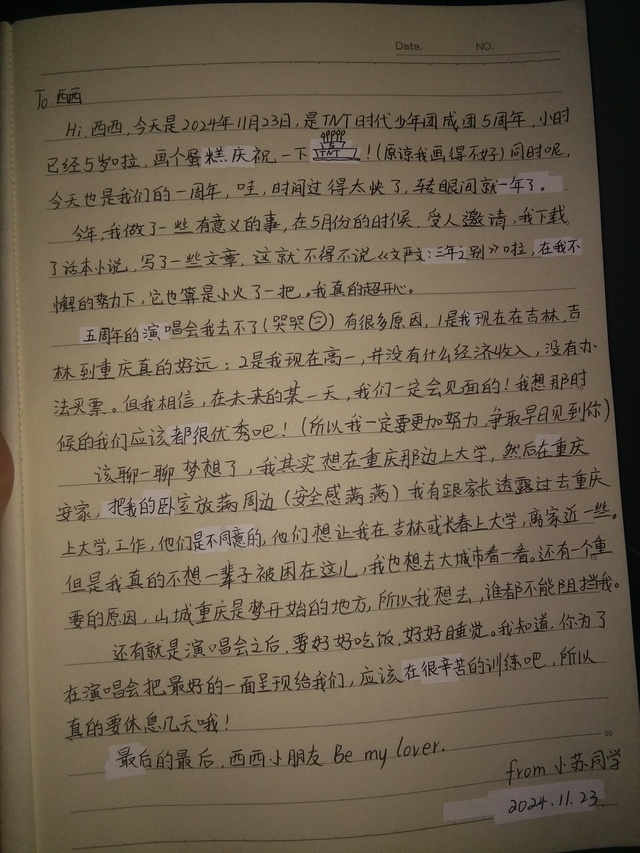 Date. NO.
To 西西
Hi, 西西, 今天是2024年11月23日, 是TNT时代少年团成团5周年, 小时
已经5岁啦, 画个蛋糕庆祝一下 TNT !(原谅我画得不好)同时呢,
今天也是我们的一周年, 哇, 时间过得太快了, 转眼间就一年了。
今年, 我做了一些有意义的事, 在5月份的时候, 受人邀请, 我下载
了话本小说, 写了一些文章, 这就不得不说《文严文:三年之别》啦, 在我不
懈的努力下, 它也算是小火了一把。我真的超开心。
五周年的演唱会我去不了(哭哭)有很多原因, 1是我现在在吉林, 吉
林到重庆真的好远; 2是我现在高一, 并没有什么经济收入, 没有办
法买票。但我相信, 在未来的某一天, 我们一定会见面的!我想那时
候的我们应该都很优秀吧!(所以我一定要更加努力, 争取早日见到你)
该聊一聊梦想了, 我其实想在重庆那边上大学, 然后在重庆
安家, 把我的卧室放满周边(安全感满满)我有跟家长透露过去重庆
上大学, 工作, 他们是不同意的, 他们想让我在吉林或长春上大学, 离家近一些。
但是我真的不想一辈子被困在这儿, 我也想去大城市看一看。还有一个重
要的原因, 山城重庆是梦开始的地方, 所以我想去, 谁都不能阻挡我。
还有就是演唱会之后, 要好好吃饭, 好好睡觉。我知道, 你为了
在演唱会把最好的一面呈现给我们, 应该在很辛苦的训练吧, 所以
真的要休息几天哦!
最后的最后, 西西小朋友 Be my lover.
from 小苏同学
2024.11.23